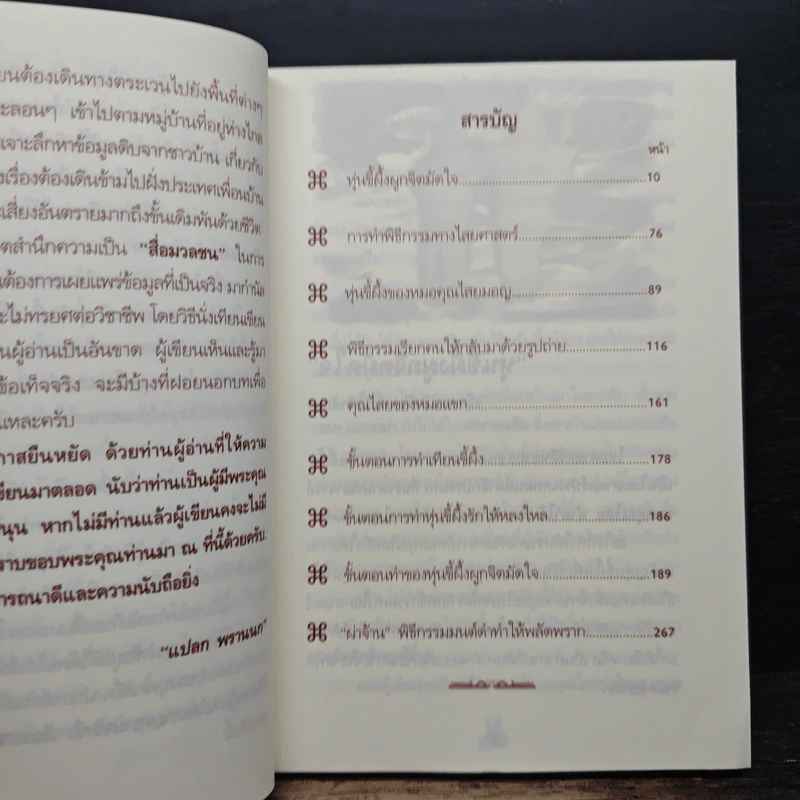 ยนต้องเดินทางตระเวนไปยังพื้นที่ต่างๆ
ะลอนๆ เข้าไปตามหมู่บ้านที่อยู่ห่างไกล
รเจาะลึกหาข้อมูลดิบจากชาวบ้าน เกี่ยวกับ
งเรื่องต้องเดินข้ามไปฝั่งประเทศเพื่อนบ้าน
ะเสี่ยงอันตรายมากถึงขั้นเดิมพันด้วยชีวิต
ตสำนึกความเป็น “สื่อมวลชน” ในการ
นต้องการเผยแพร่ข้อมูลที่เป็นจริง มากำนัล
ะไม่ทรยศต่อวิชาชีพ โดยวิธีนั่งเทียนเขียน
นผู้อ่านเป็นอันขาด ผู้เขียนเห็นและรู้มา
ข้อเท็จจริง จะมีบ้างที่ฝอยนอกบทเพื่อ
แหละครับ
กาสยืนหยัด ด้วยท่านผู้อ่านที่ให้ความ
ขียนมาตลอด นับว่าท่านเป็นผู้มีพระคุณ
นุน หากไม่มีท่านแล้วผู้เขียนคงจะไม่มี
ราบขอบพระคุณท่านมา ณ ที่นี้ด้วยครับ
ารถนาดีและความนับถือยิ่ง
“แปลก พรานนก”
สารบัญ
หน้า
หุ่นขี้ผึ้งผูกจิตมัดใจ 10
การทำพิธีกรรมทางไสยศาสตร์ 76
หุ่นขี้ผึ้งของหมอคุณไสยมอญ 89
พิธีกรรมเรียกคนให้กลับมาด้วยรูปถ่าย 116
คุณไสยของหมอแขก 161
ขั้นตอนการทำเทียนขี้ผึ้ง 178
ขั้นตอนการทำหุ่นขี้ผึ้งรักให้หลงใหล 186
ขั้นตอนทำของหุ่นขี้ผึ้งผูกจิตมัดใจ 189
“ผ่าจ้าน” พิธีกรรมมนต์ดำทำให้พลัดพราก 267